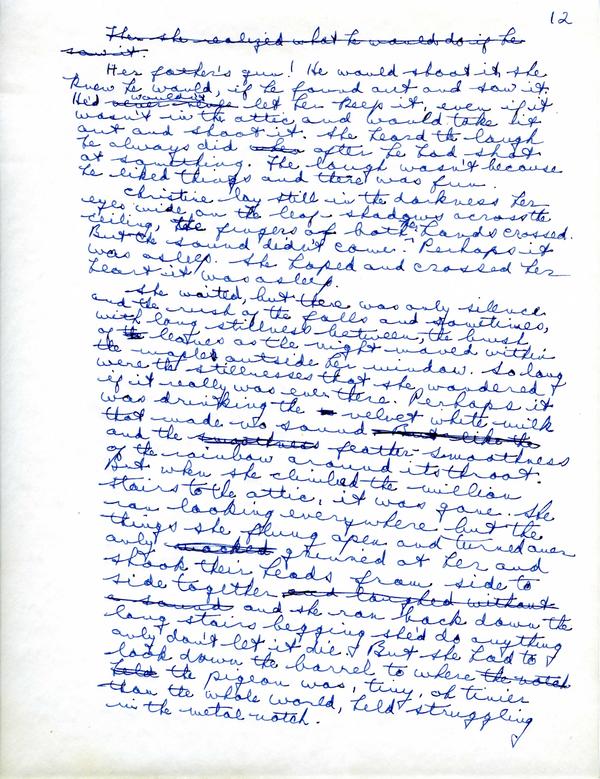 12
Then she realized what he would do if he
saw it.
Her father's gun! He would shoot it, she
knew he would, if he found out and saw it.
He'd never wouldn't let her keep it, even if it
wasn't in the attic, and would take it
out and shoot it. She heard the laugh
he always did she after he had shot
at something. The laugh wasn't because
he liked things and there was fun.
Christine lay still in the darkness her
eyes wide on the leaf-shadows across the
ceiling, the fingers of both her hands crossed.
But the sound didn't come. Perhaps it
was asleep. She hoped and crossed her
heart it was asleep.
She waited, but there was only silence
and the rush of the falls and sometimes,
with long stillness between, the brush
of the leaves as the night moved within
the maples outside her window. So long
were the stillnesses that she wondered
if it really was ever there. Perhaps it
was drinking the velvet white milk
that made no sound But like the
and the smoothness feather-smoothness
of the rainbow around its throat.
But when she climbed the million
stairs to the attic, it was gone. She
ran looking everywhere but the
things she flung open and turned over
only grinned at her and
shook their heads from side to
side together and laughed without
a sound and she ran back down the
long stairs begging she'd do anything
only don't let it die! But she had to
look down the barrel to where the notch
held the pigeon was, tiny, oh tinier
than the whole world, held struggling
in the metal notch.